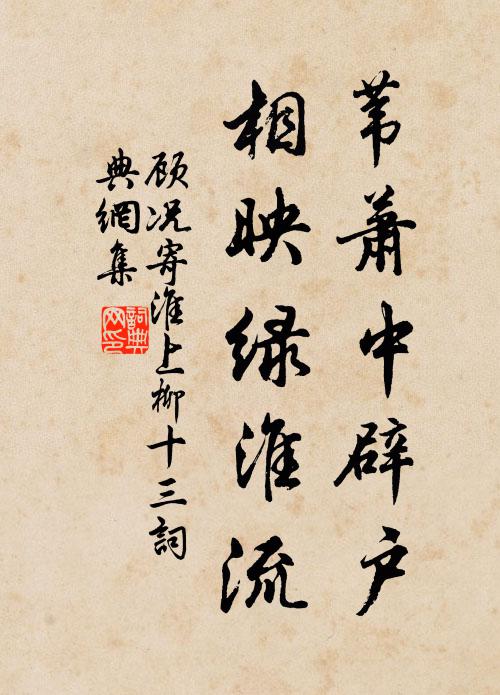 苇萧中辟户
相映绿淮流
顾况寄淮上柳十三词
典網集
詞典
网印